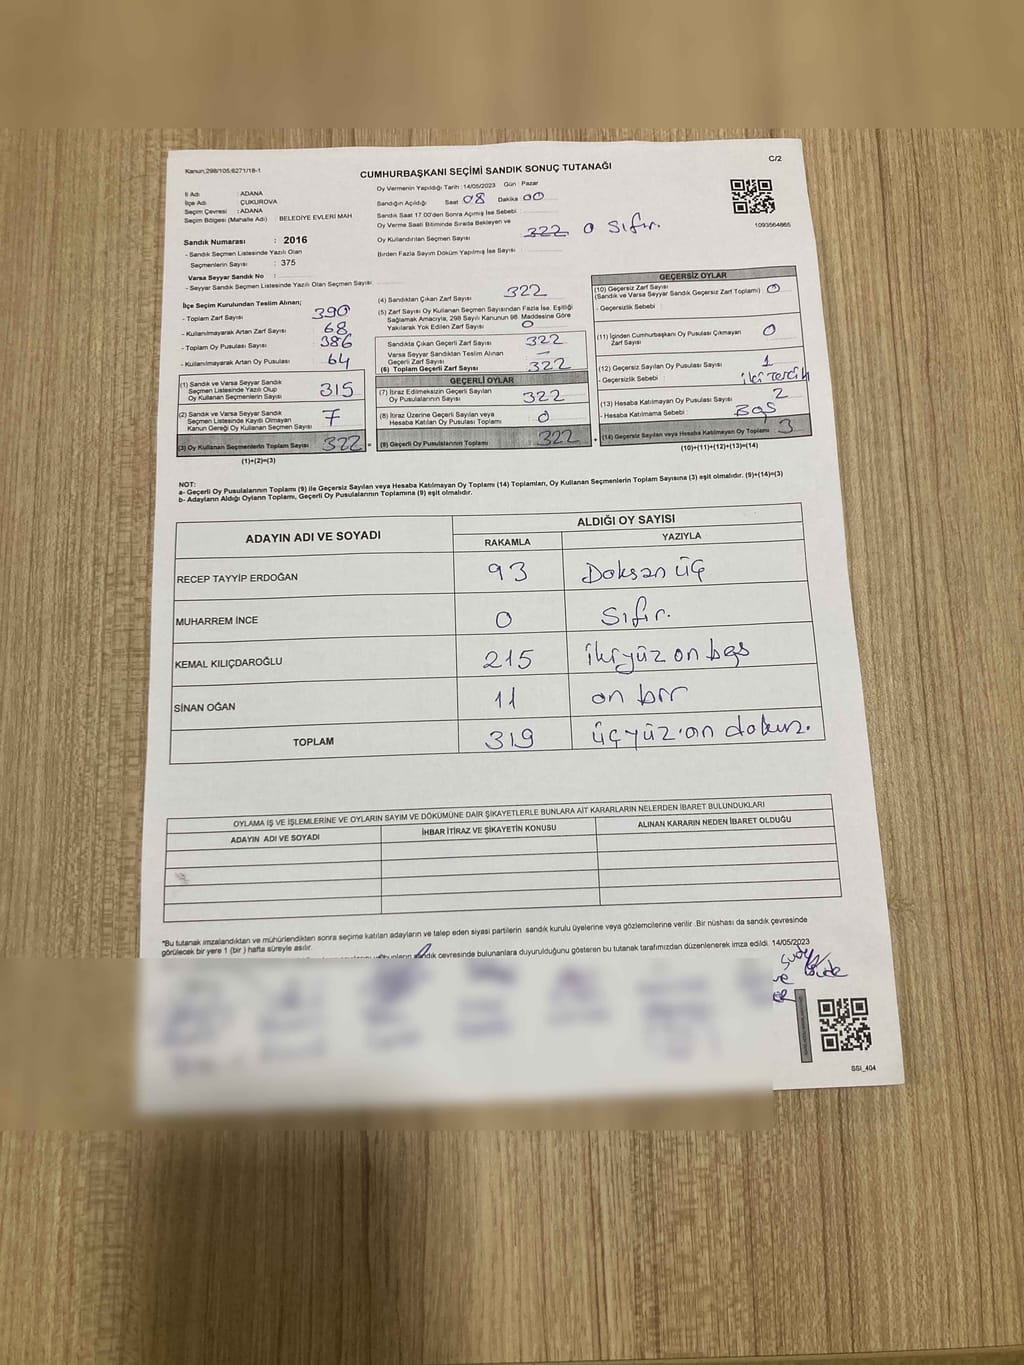 Kanun;298/105;6271/18-1
C/2
CUMHURBAŞKANI SEÇİMİ SANDIK SONUÇ TUTANAĞI
İl Adı : ADANA
İlçe Adı : ÇUKUROVA
Seçim Çevresi : ADANA
Seçim Bölgesi (Mahalle Adı) : BELEDİYE EVLERİ MAH
Sandık Numarası : 2016
- Sandık Seçmen Listesinde Yazılı Olan
Seçmenlerin Sayısı : 375
Varsa Seyyar Sandık No :
- Seyyar Sandık Seçmen Listesinde Yazılı Olan Seçmen Sayısı :
Oy Vermenin Yapıldığı Tarih : 14/05/2023 Gün : Pazar
Sandığın Açıldığı Saat 08 Dakika 00
Sandık Saat 17.00'den Sonra Açılmış İse Sebebi :
Oy Verme Saati Bitiminde Sırada Bekleyen ve
Oy Kullandırılan Seçmen Sayısı 322 0 Sıfır.
Birden Fazla Sayım Döküm Yapılmış İse Sayısı :
1093564865
İlçe Seçim Kurulundan Teslim Alınan;
- Toplam Zarf Sayısı 390
- Kullanılmayarak Artan Zarf Sayısı 68
- Toplam Oy Pusulası Sayısı 386
- Kullanılmayarak Artan Oy Pusulası 64
(1) Sandık ve Varsa Seyyar Sandık
Seçmen Listesinde Yazılı Olup
Oy Kullanan Seçmenlerin Sayısı 315
(2) Sandık ve Varsa Seyyar Sandık
Seçmen Listesinde Kayıtlı Olmayan
Kanun Gereği Oy Kullanan Seçmen Sayısı 7
(3) Oy Kullanan Seçmenlerin Toplam Sayısı 322
(1)+(2)=(3)
(4) Sandıktan Çıkan Zarf Sayısı 322
(5) Zarf Sayısı Oy Kullanan Seçmen Sayısından Fazla İse, Eşitliği
Sağlamak Amacıyla, 298 Sayılı Kanunun 98. Maddesine Göre
Yakılarak Yok Edilen Zarf Sayısı 0
Sandıkta Çıkan Geçerli Zarf Sayısı 322
Varsa Seyyar Sandıktan Teslim Alınan
Geçerli Zarf Sayısı —
(6) Toplam Geçerli Zarf Sayısı 322
GEÇERLİ OYLAR
(7) İtiraz Edilmeksizin Geçerli Sayılan
Oy Pusulalarının Sayısı 322
(8) İtiraz Üzerine Geçerli Sayılan veya
Hesaba Katılan Oy Pusulası Toplamı 0
(9) Geçerli Oy Pusulalarının Toplamı 322
GEÇERSİZ OYLAR
(10) Geçersiz Zarf Sayısı 0
(Sandık ve Varsa Seyyar Sandık Geçersiz Zarf Toplamı)
- Geçersizlik Sebebi :
(11) İçinden Cumhurbaşkanı Oy Pusulası Çıkmayan
Zarf Sayısı 0
(12) Geçersiz Sayılan Oy Pusulası Sayısı 1
- Geçersizlik Sebebi : iki Tercih
(13) Hesaba Katılmayan Oy Pusulası Sayısı 2
- Hesaba Katılmama Sebebi : Boş
(14) Geçersiz Sayılan veya Hesaba Katılmayan Oy Toplamı 3
(10)+(11)+(12)+(13)=(14)
NOT:
a- Geçerli Oy Pusulalarının Toplamı (9) ile Geçersiz Sayılan veya Hesaba Katılmayan Oy Toplamı (14) Toplamları, Oy Kullanan Seçmenlerin Toplam Sayısına (3) eşit olmalıdır. (9)+(14)=(3)
b- Adayların Aldığı Oyların Toplamı, Geçerli Oy Pusulalarının Toplamına (9) eşit olmalıdır.
ADAYIN ADI VE SOYADI
ALDIĞI OY SAYISI
RAKAMLA YAZIYLA
RECEP TAYYİP ERDOĞAN 93 Doksan üç
MUHARREM İNCE 0 Sıfır.
KEMAL KILIÇDAROĞLU 215 ikiyüz on beş
SİNAN OĞAN 11 on bir
TOPLAM 319 üçyüz on dokuz.
OYLAMA İŞ VE İŞLEMLERİNE VE OYLARIN SAYIM VE DÖKÜMÜNE DAİR ŞİKAYETLERLE BUNLARA AİT KARARLARIN NELERDEN İBARET BULUNDUKLARI
ADAYIN ADI VE SOYADI İHBAR İTİRAZ VE ŞİKAYETİN KONUSU ALINAN KARARIN NEDEN İBARET OLDUĞU
*Bu tutanak imzalandıktan ve mühürlendikten sonra seçime katılan adayların ve talep eden siyasi partilerin sandık kurulu üyelerine veya gözlemcilerine verilir. Bir nüshası da sandık çevresinde
görülecek bir yere 1 (bir) hafta süreyle asılır.
sandık çevresinde bulunanlara duyurulduğunu gösteren bu tutanak tarafımızdan düzenlenerek imza edildi. 14/05/2023
SSI_404